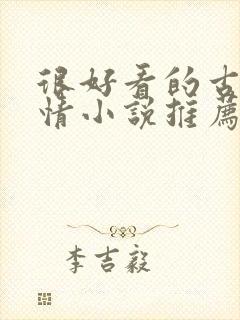 很好看的古
情小説推薦
李吉毅